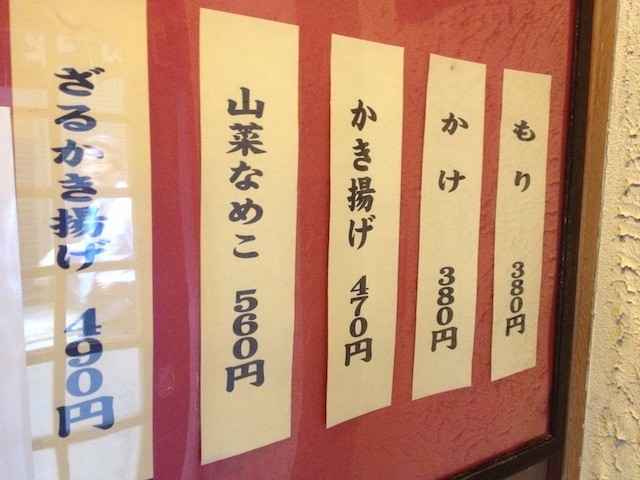 もり 380円
かけ 380円
かき揚げ 470円
山菜なめこ 560円
ざるかき揚げ 490円